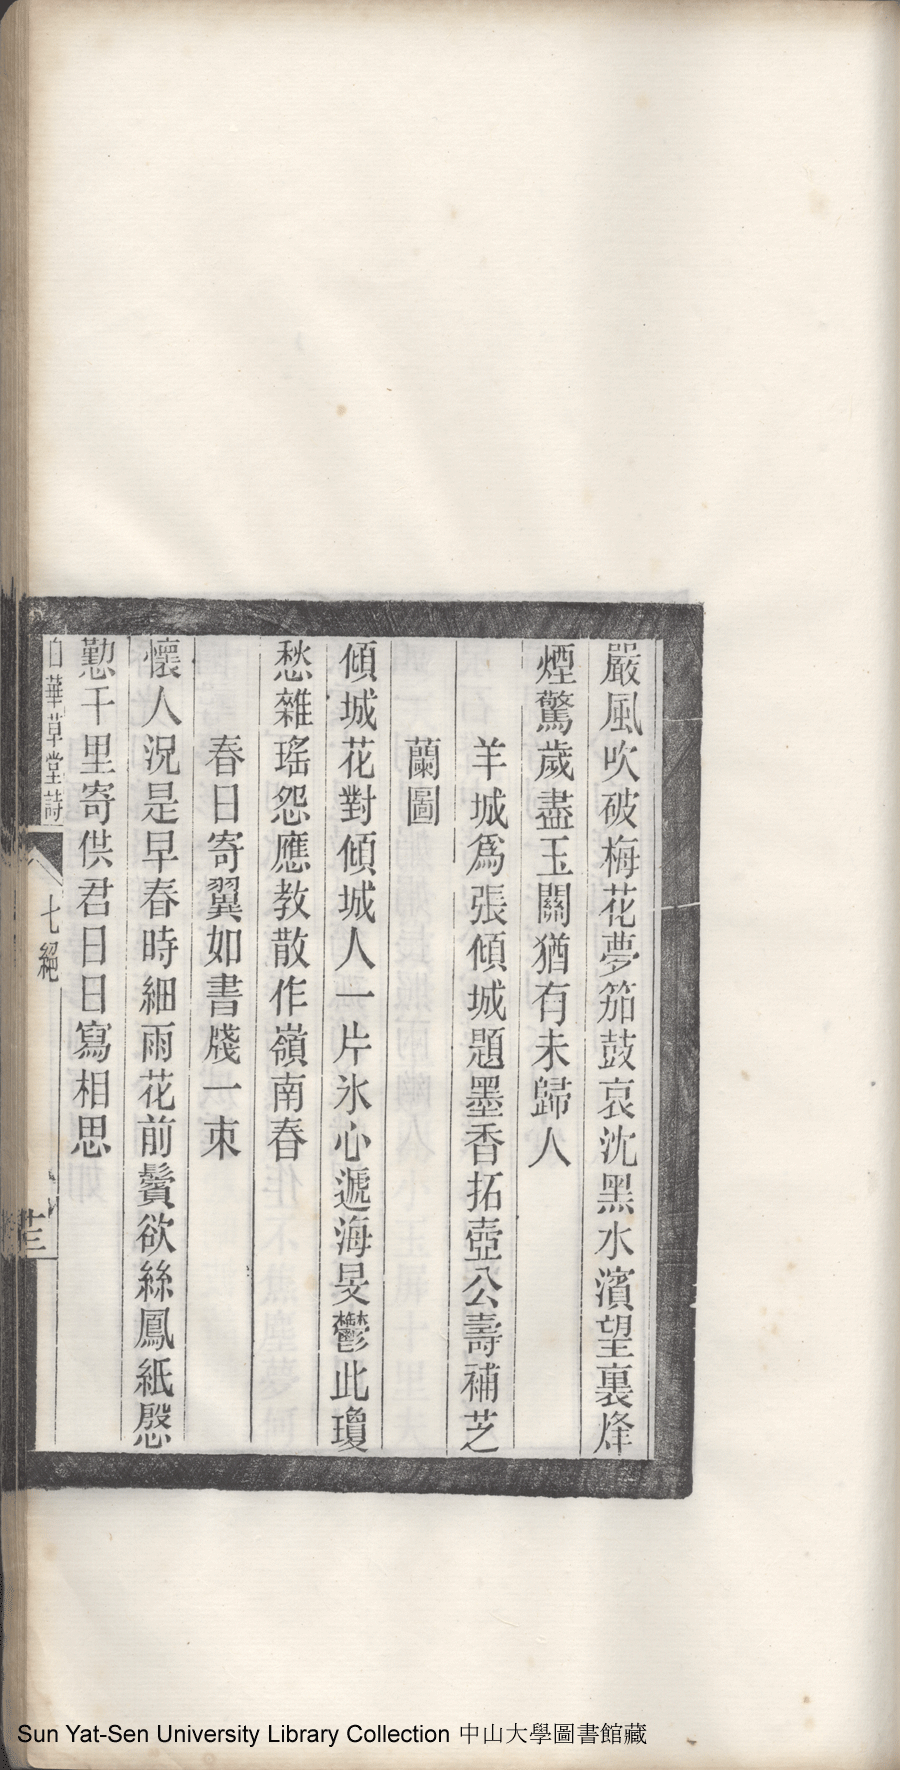 嚴風吹破梅花夢笳鼓哀沈黑水濱望裏烽
煙驚歲盡玉關猶有未歸人
羊城爲張傾城題墨香拓壺公壽補芝
蘭圖
傾城花對傾城人一片氷心遞海旻鬱此瓊
愁雜瑤怨應教散作嶺南春
春日寄翼如書牋一束
懷人況是早春時細雨花前鬢欲絲鳳紙慇
懃千里寄供君日日寫相思
白華草堂詩
七絕
廿三
Sun Yat-Sen University Library Collection 中山大學圖書館藏